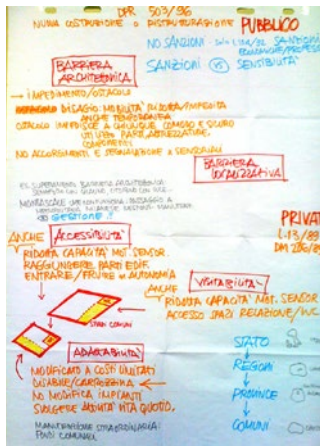 DPR 503/96
NUOVA COSTRUZIONE O RISTRUTTURAZIONE PUBBLICO
NO SANZIONI
SANZIONI VS SENSIBILITÀ
BARRIERA
ARCHITETTONICA
→ IMPEDIMENTO/OSTACOLO
DISAGIO MOBILITÀ RIDOTTA/IMPEDITA
ANCHE TEMPORANEA
OSTACOLO IMPEDISCE A CHIUNQUE COMODO E SICURO
UTILIZZO PARTI, ATTREZZATURE,
COMPONENTI
NO ACCORGIMENTI E SEGNALAZIONI X SENSORIALI
BARRIERA
LOCALIZZATIVA
GESTIONE !!
PRIVAT
L.13/89
DM 236/89
ANCHE ACCESSIBILITÀ
RIDOTTA CAPACITÀ MOT. SENSOR
RAGGIUNGERE PARTI EDIF.
ENTRARE/FRUIRE IN AUTONOMIA
VISITABILITÀ
ANCHE
RIDOTTA CAPACITÀ MOT. SENSOR
ACCESSO SPAZI RELAZIONE/WC
SPAZI COMUNI
ADATTABILITÀ
MODIFICATO A COSTI LIMITATI
DISABILE/CARROZZINA
NO MODIFICA IMPIANTI
SVOLGERE ATTIVITÀ VITA QUOTID.
MANUTENZIONE STRAORDINARIA
FONDI COMUNALI
STATO
REGIONI
PROVINCE
COMUNI